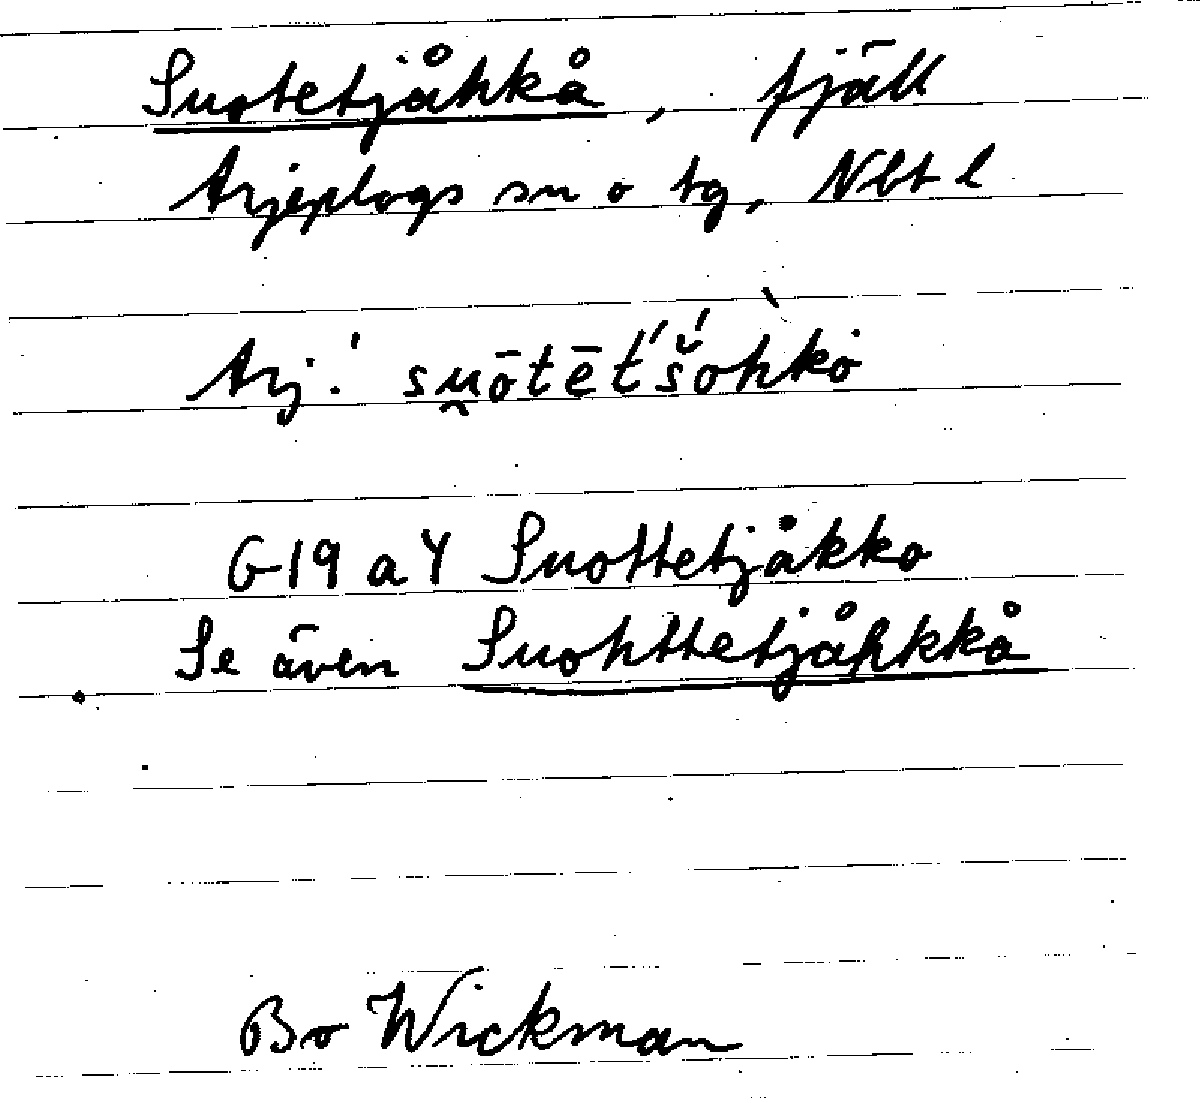 Suotetjåhkå, fjäll
Arjeplogs sn o tg, Nbt l
Arj.' su̯ōtēt́'š́ohkȯ̀
G19 a Y Suottetjåkko
Se även Suohttetjåhkkå
Bo Wickman